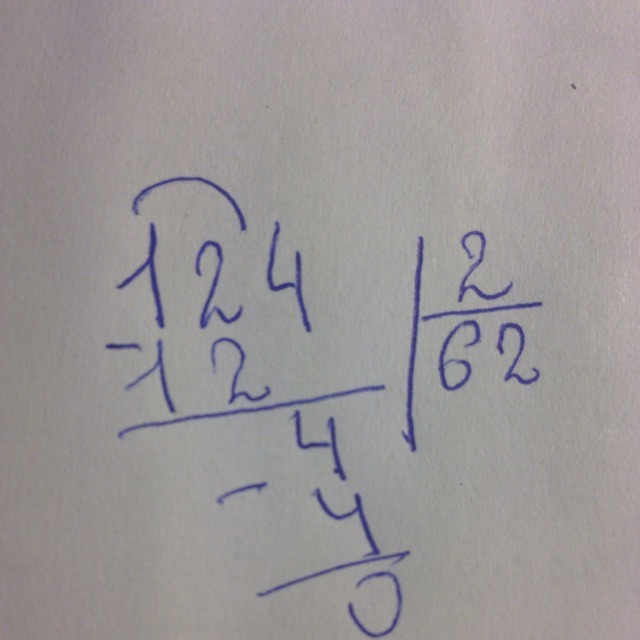 124 2
-12 62
4
- 4
0